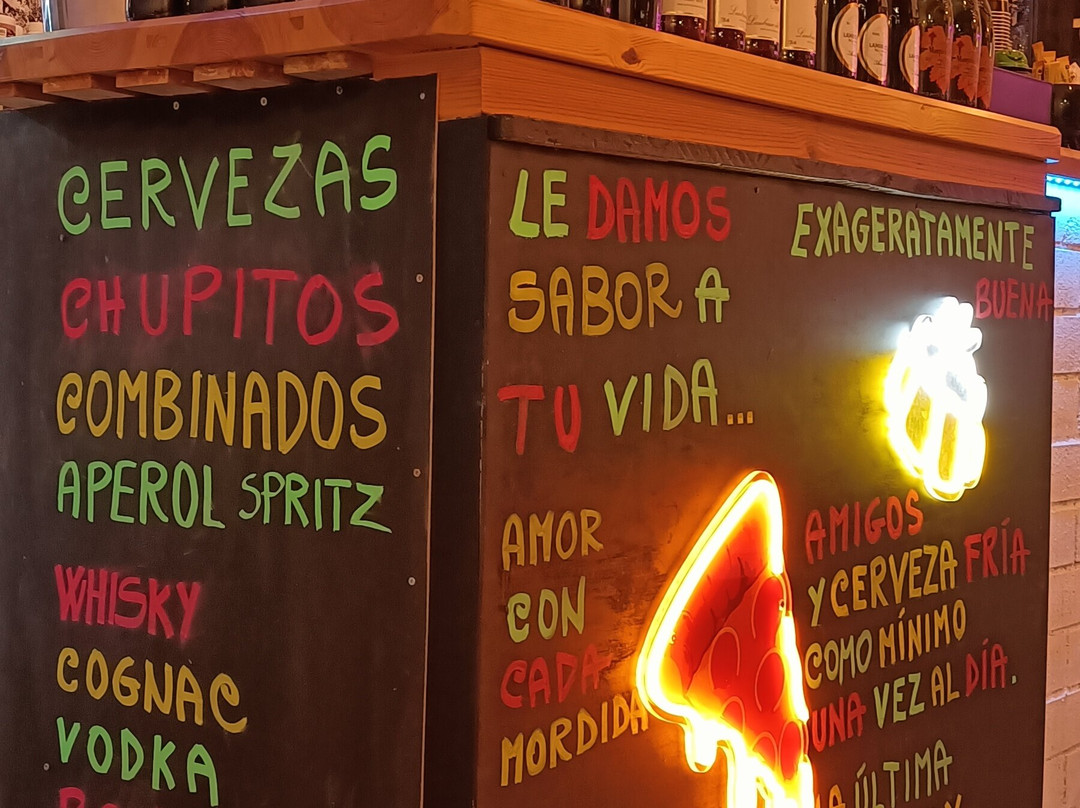 CERVEZAS
CHUPITOS
COMBINADOS
APEROL SPRITZ
WHISKY
COGNAC
VODKA
LE DAMOS
SABOR A
TU VIDA...
AMOR
CON
CADA
MORDIDA
EXAGERATAMENTE
BUENA
AMIGOS
Y CERVEZA FRÍA
COMO MÍNIMO
UNA VEZ AL DÍA.
ÚLTIMA